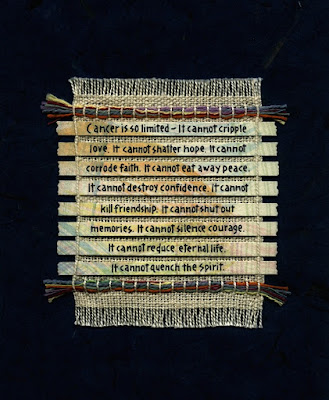 Cancer is so limited - It cannot cripple
love. It cannot shatter hope. It cannot
corrode faith. It cannot eat away peace.
It cannot destroy confidence. It cannot
kill friendship. It cannot shut out
memories. It cannot silence courage.
It cannot reduce eternal life.
It cannot quench the Spirit.